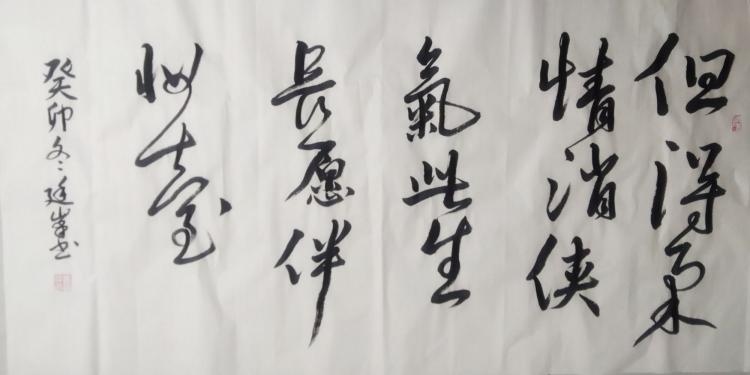 但得柔
情消侠
氣此生
長愿伴
妝臺
癸卯冬廷峯书